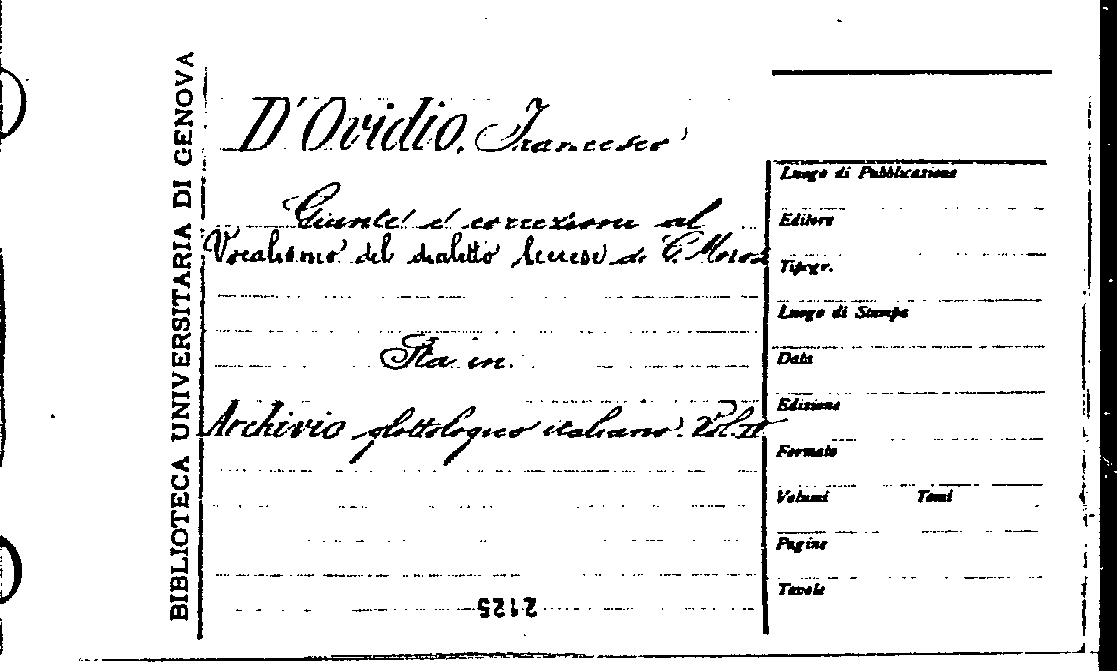 BIBLIOTECA UNIVERSITARIA DI GENOVA
D'Ovidio, Francesco
Giunte e correzioni al
Vocalismo del dialetto leccese di C. Morosi
Sta in:
Archivio glottologico italiano. Vol. IV
2125
Luogo di Pubblicazione
Editore
Tipogr.
Luogo di Stampa
Data
Edizione
Formato
Volumi Tomi
Pagine
Tavole